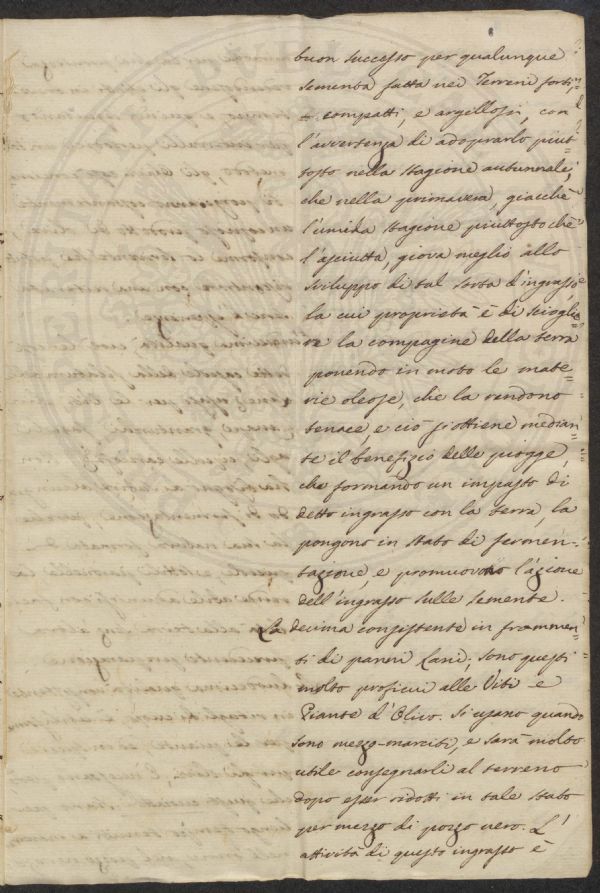 buon successo per qualunque
sementa fatta nei Terreni forti,
compatti, e argillosi, con
l'avvertenza di adoprarlo piut=
tosto nella stagione autunnale,
che nella primavera, giacchè
l'umida stagione piuttosto che
l'asciutta, giova meglio allo
sviluppo di tal sorta d'ingrasso,
la cui proprietà è di sciogli=
re la compagine della terra
ponendo in moto le mate=
rie oleose, che la rendono
tenace, e ciò si ottiene median=
te il benefizio delle piogge,
che formando un impasto di
detto ingrasso con la terra, la
pongono in stato di fermen=
tazione, e promuovono l'azione
dell'ingrasso sulle semente.
La decima consistente in frammen=
ti di panni Lani; sono questi
molto proficui alle Viti e
Piante d'Olivo. Si usano quando
sono mezzo-marciti, e sarà molto
utile consegnarli al terreno
dopo esser ridotti in tale stato
per mezzo di pozzo nero. L'
attività di questo ingrasso è